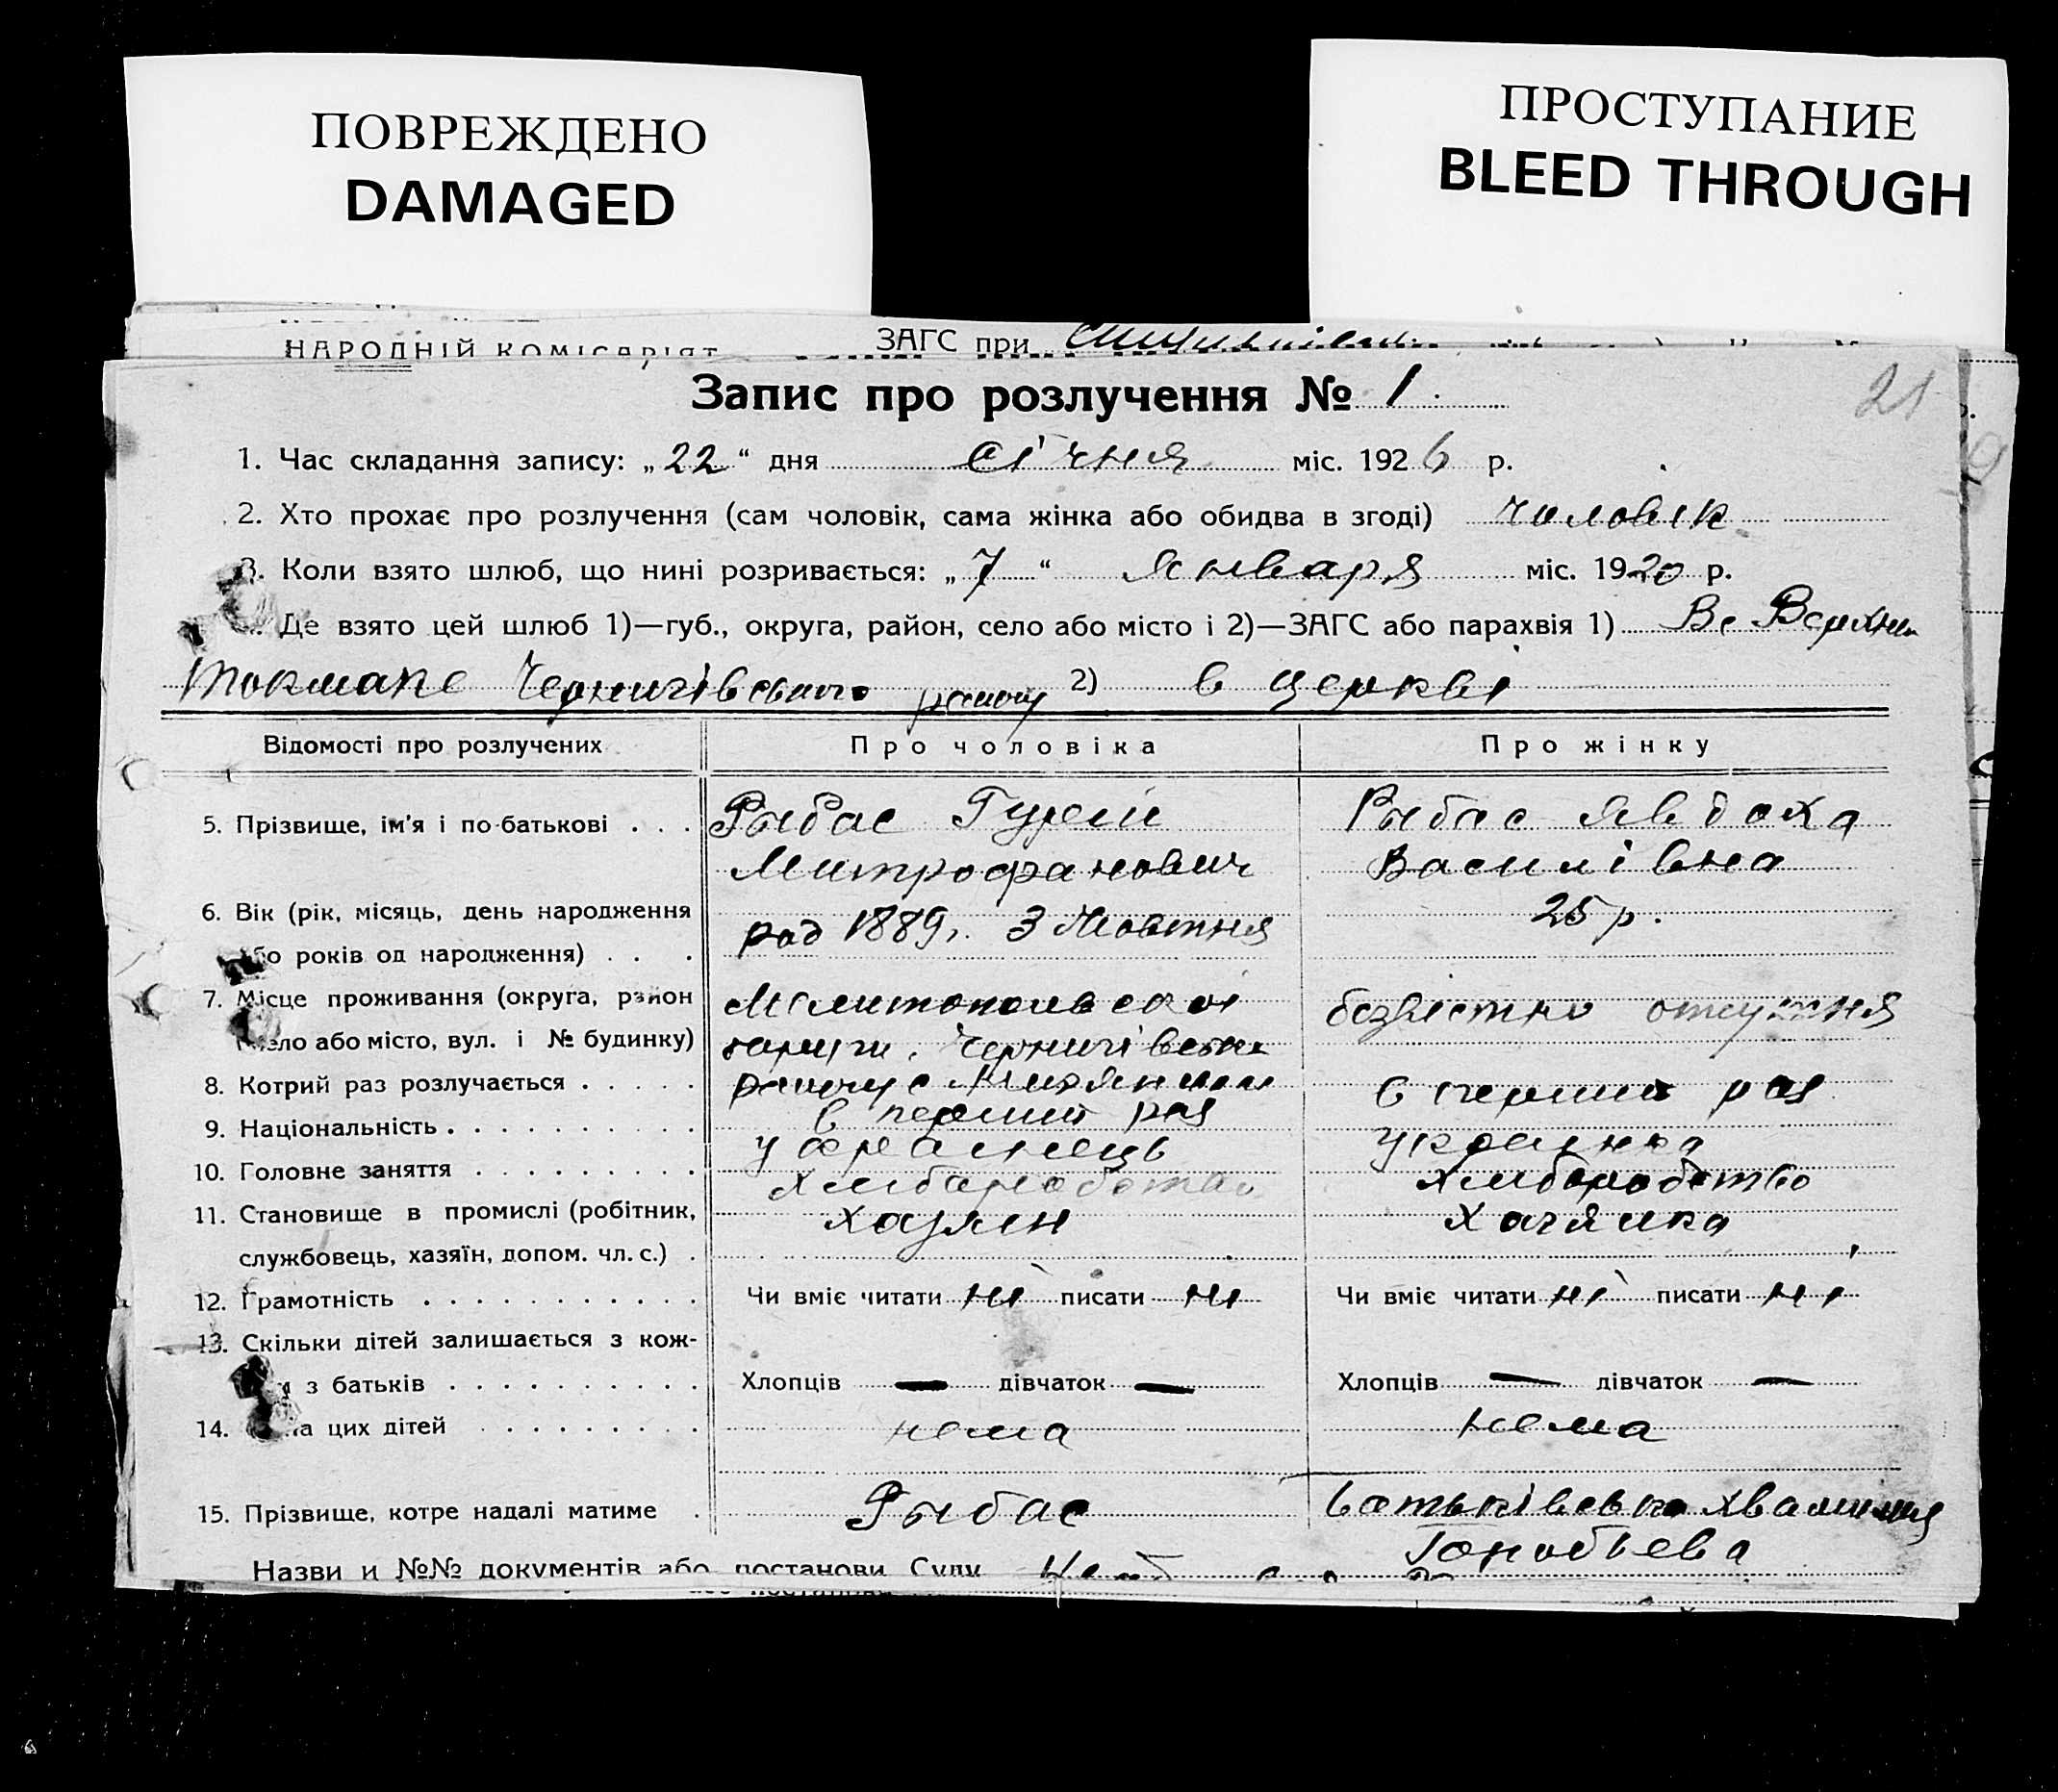 ПОВРЕЖДЕНО
DAMAGED
ПРОСТУПАНИЕ
BLEED THROUGH
НАРОДНІЙ КОМІСАРІЯТ
ЗАГС при
Запис про розлучення № 1.
21
1. Час складання запису: „22“ дня січня міс. 1926 р.
2. Хто прохає про розлучення (сам чоловік, сама жінка або обидва в згоді) чоловік
3. Коли взято шлюб, що нині розривається: „7“ Января міс. 1920 р.
Де взято цей шлюб 1)—губ., округа, район, село або місто і 2)—ЗАГС або парахвія 1) Ве Верхнем
Токмаке Чернигівського району 2) в церкві
Відомості про розлучених Про чоловіка Про жінку
5. Прізвище, ім'я і по-батькові . . . Рыбас Гурей Рыбас Явдоха
Митрофанович Василівна
6. Вік (рік, місяць, день народження род 1889 р. 3 Жовтня 25 р.
або років од народження) . . .
7. Місце проживання (округа, район Мелитопольскої безвістно отсутня
село або місто, вул. і № будинку) округи, Чернигівськ
району с.
8. Котрий раз розлучається . . . . . в перший раз в перший раз
9. Національність . . . . . . . . . . украинець украинка
10. Головне заняття . . . . . . . . . хлиборобство хлиборобство
11. Становище в промислі (робітник, хазяин хазяика
службовець, хазяїн, допом. чл. с.) .
12. Грамотність . . . . . . . . . . . Чи вміє читати ні писати ні Чи вміє читати ні писати ні
13. Скільки дітей залишається з кож-
з батьків . . . . . . . . . . Хлопців — дівчаток — Хлопців — дівчаток —
14. цих дітей . . . . . . . . . нема нема
15. Прізвище, котре надалі матиме . Рыбас батьківська хвамилия
Назви и №№ документів або постанови Суду